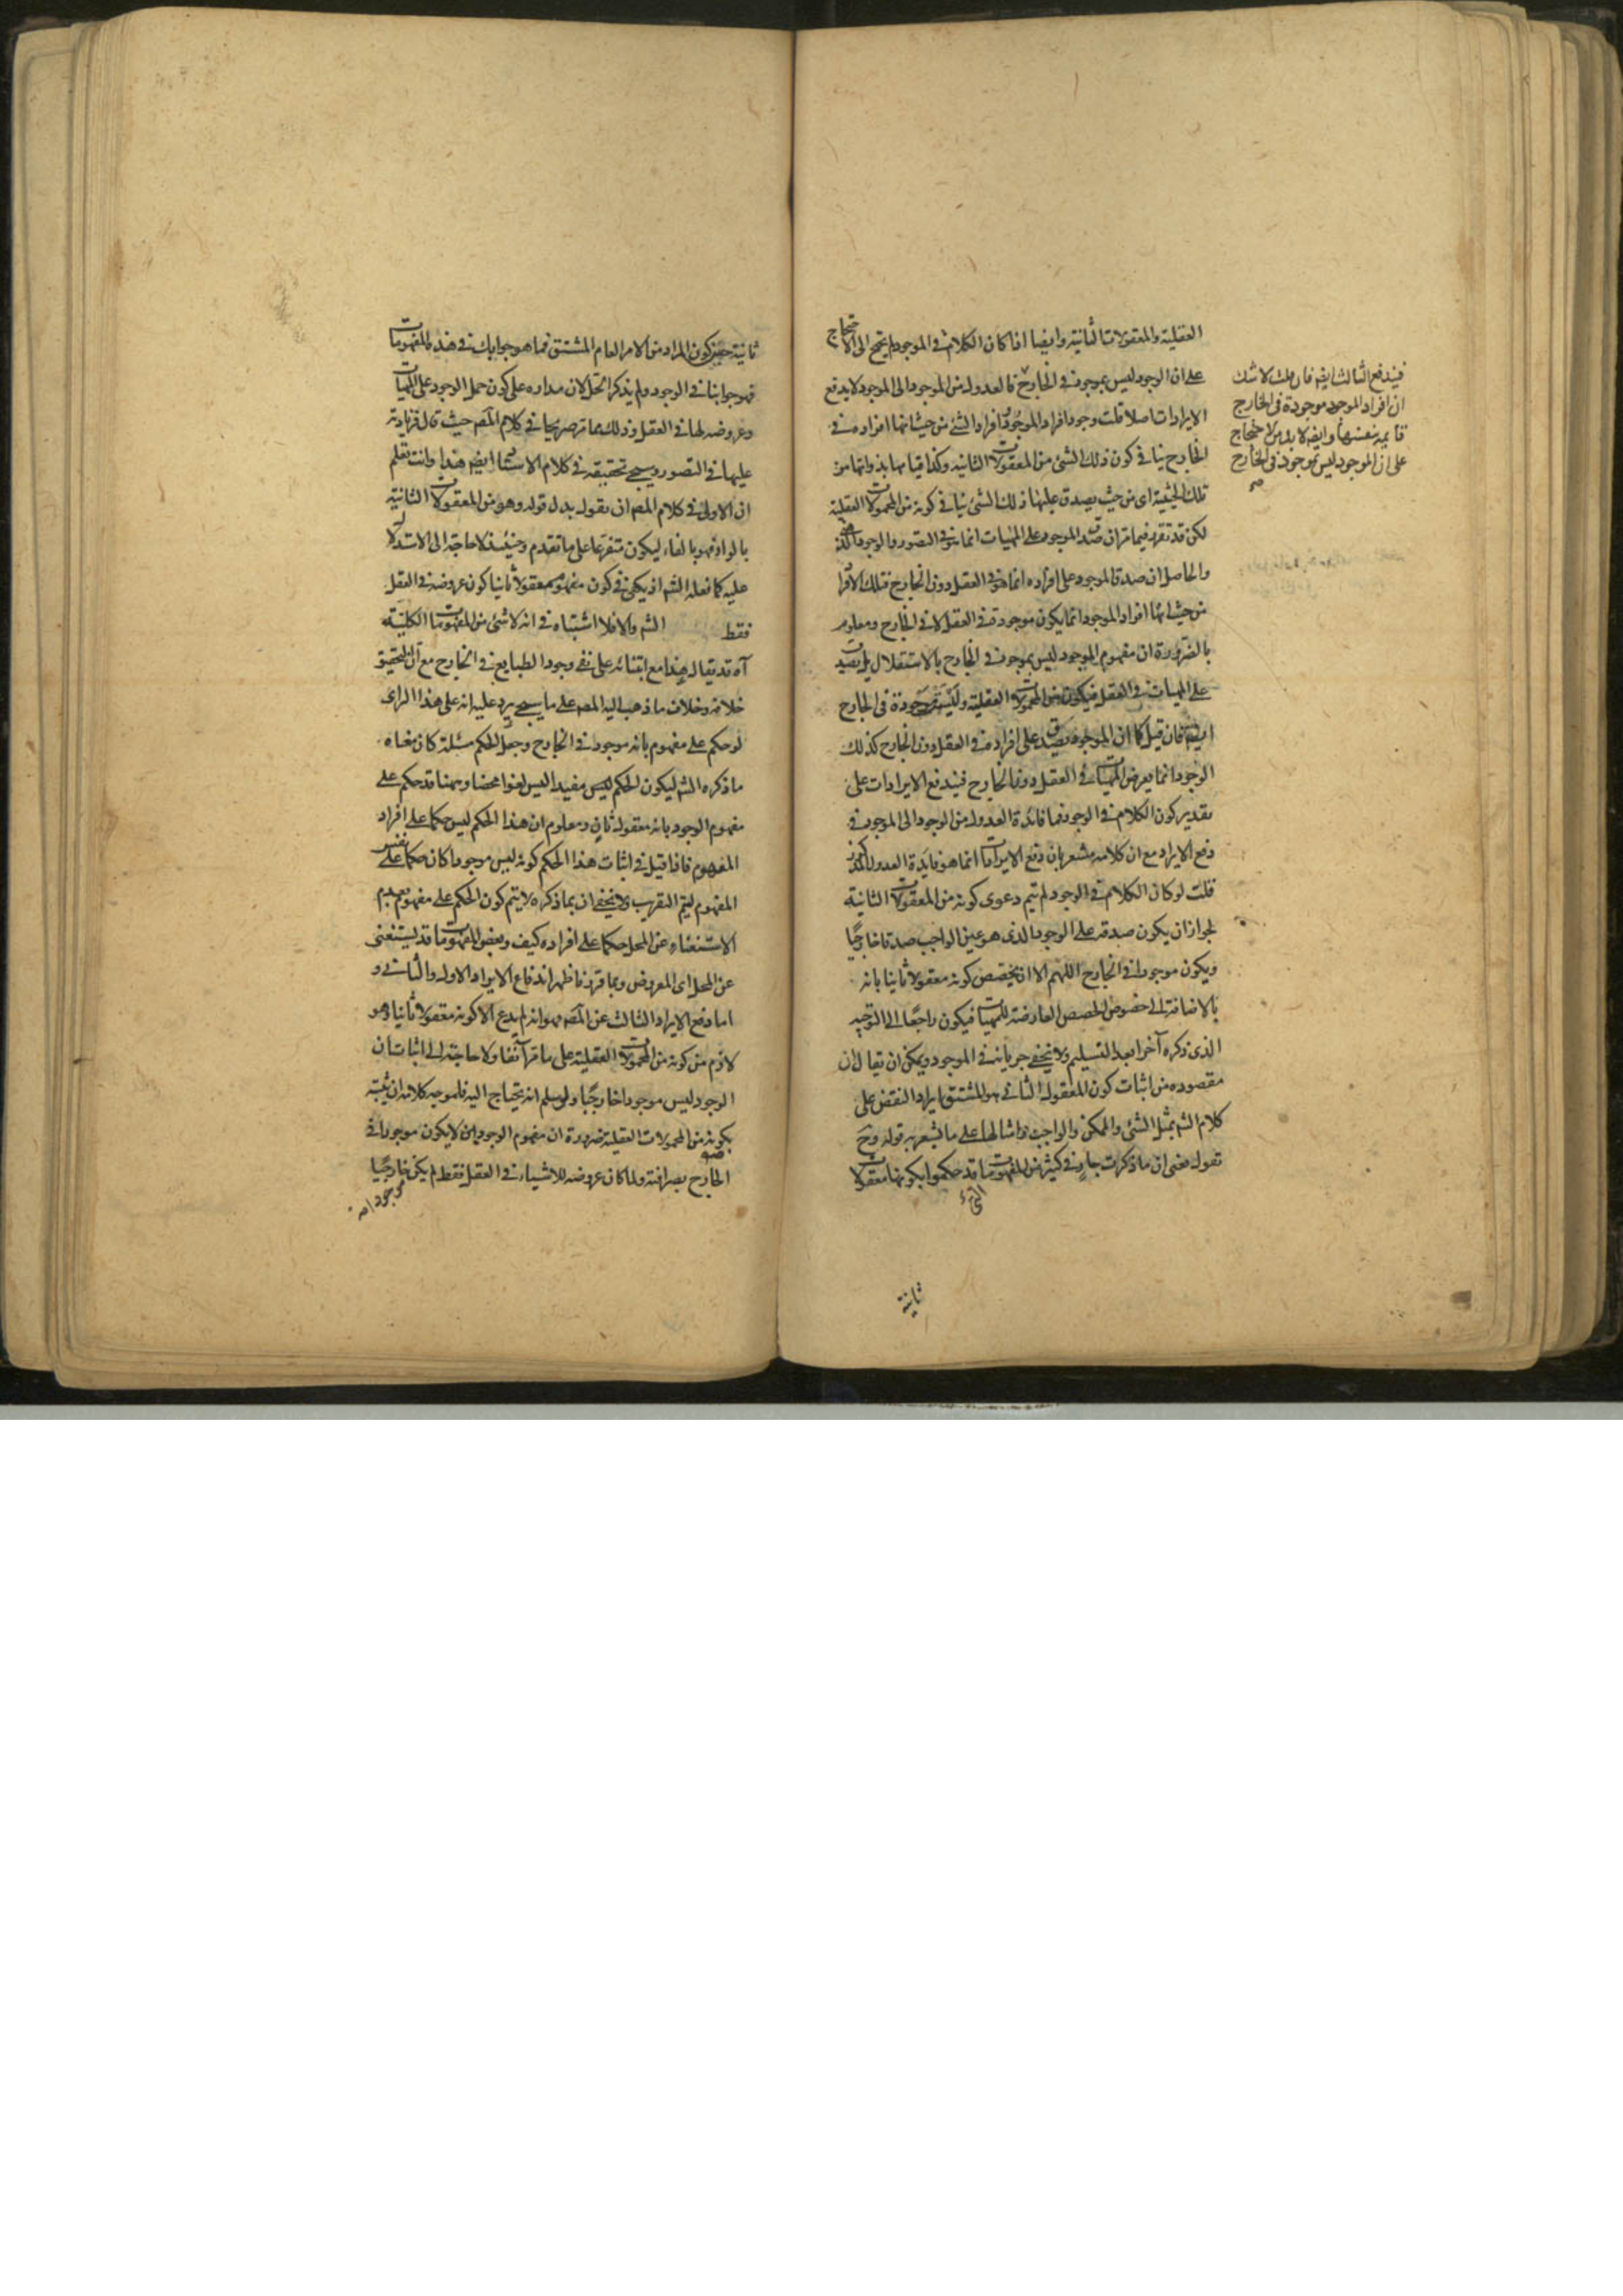 العقلية والمعقولات الثانية وايضا اذا كان الكلام فى الموجود لم يحتج الى الاحتجاج
على ان الوجود ليس بموجود فى الخارج فالعدول من الموجود الى الموجود لا يدفع
الايرادات اصلا قلت وجود افراد الموجود افراد الشئ من حيث انها افراده فى
الخارج ينافى كون ذلك الشئ من المعقولات الثانية وكذا قيامها بذواتها من
تلك الحيثية اى من حيث يصدق عليها ذلك الشئ ينافى كونه من المحمولات العقلية
لكن قد تقرر فيما مر ان صدق الموجود على المهيات انما هو فى التصور والوجود الذهنى
والحاصل ان صدق الموجود على افراده انما هو فى العقل دون الخارج فتلك الافراد
من حيث انها افراد الموجود انما يكون موجودة فى العقل لا فى الخارج ومعلوم
بالضرورة ان مفهوم الموجود ليس بموجود فى الخارج بالاستقلال بل يصدق
على المهيات فى العقل فيكون من المحمولات العقلية وليست موجودة فى الخارج
ايضا فان قيل كما ان الموجود يصدق على افراده فى العقل دون الخارج كذلك
الوجود انما يعرض المهيات فى العقل دون الخارج فيندفع الايرادات على
تقدير كون الكلام فى الوجود فما فائدة العدول من الوجود الى الموجود فى
دفع الايراد مع ان كلامه مشعر بان دفع الايرادات انما هو فايدة العدول المذكور
قلت لو كان الكلام فى الوجود لم تيم دعوى كونه من المعقولات الثانية
لجواز ان يكون صدقه على الوجود الذى هو عين الواجب صدقا خارجيا
ويكون موجودا فى الخارج اللهم الا ان يخصص كونه معقولا ثانيا بانه
بالاضافة الى خصوص الحصص العارضة للمهيات فيكون راجعا الى التوجيه
الذى ذكره آخرا بعد التسليم ولا يخفى جريانه فى الموجود ويمكن ان يقال ان
مقصوده من اثبات كون المعقول الثانى هو المشتق ايراد النقض على
كلام الشم بمثل الشئ والممكن والواجب وامثالها على ما يشعر به قوله وح
نقول يعنى ان ما ذكرت جار فى كثير من المفهومات قد حكموا بكونها معقولات
ثانية
فيندفع الثالث ايضا فان قلت لا شك
ان افراد الموجود موجودة فى الخارج
قايمة بنفسها وايضا لا بد من الاحتجاج
على ان الموجود ليس بموجود فى الخارج
صح
ثانية حين كون المراد من الامر العام المشتق فما هو جوابك فى هذه المفهومات
فهو جوابنا فى الوجود ولم يذكر الحل لان مداره على كون حمل الوجود على المهيات
وعروضه لها فى العقل وذلك مما مر صريحا فى كلام المص حيث قال فزيادته
عليها فى التصور وسيجئ تحقيقه فى كلام الاستاد ايضا هذا وانت تعلم
ان الاولى فى كلام المص ان يقول بدل قوله وهو من المعقولات الثانية
بالواو فهو بالفاء ليكون متفرعا على ما تقدم وحينئذ لا حاجة الى الاستدلال
عليه كما فعله الشم اذ يكفى فى كون مفهوم معقولا ثانيا كون عروضه فى العقل
فقط الشم والا فلا اشتباه فى انه لا شئ من المفهومات الكلية
آه قد يقال هذا مع ابتنائه على نفى وجود الطبايع فى الخارج مع ان التحقيق
خلافه وخلاف ما ذهب اليه المص على ما سيجئ يرد عليه انه على هذا الراى
لو حكم على مفهوم بانه موجود فى الخارج وجعل الحكم مسئلة كان معناه
ما ذكره الشم ليكون الحكم مفيدا ليس لغوا محضا وههنا قد حكم على
مفهوم الوجود بانه معقول ثان ومعلوم ان هذا الحكم ليس حكما على افراد
المفهوم فاذا قيل فى اثبات هذا الحكم كونه ليس موجودا كان حكما على نفس
المفهوم ليتم التقريب ولا يخفى ان بما ذكره لا يتم كون الحكم على مفهوم بعدم
الاستغناء عن المحل حكما على افراده كيف وبعض المفهومات قد يستغنى
عن المحل اى المعروض وبما قررنا ظهر اندفاع الايراد الاول والثانى و
اما دفع الايراد الثالث عن المص فهو انه لم يدع الا كونه معقولا ثانيا وهو
لازم من كونه من المحمولات العقلية على ما مر آنفا ولا حاجة الى اثبات ان
الوجود ليس موجودا خارجيا ولو سلم انه يحتاج اليه فلتوجيه كلامه ان يثبته
بكونه من المحمولات العقلية ضرورة ان مفهوم الوجود لا يكون موجودا فى
الخارج بصرافته ولما كان عروضه للاشياء فى العقل فقط لم يكن خارجيا
موجودا